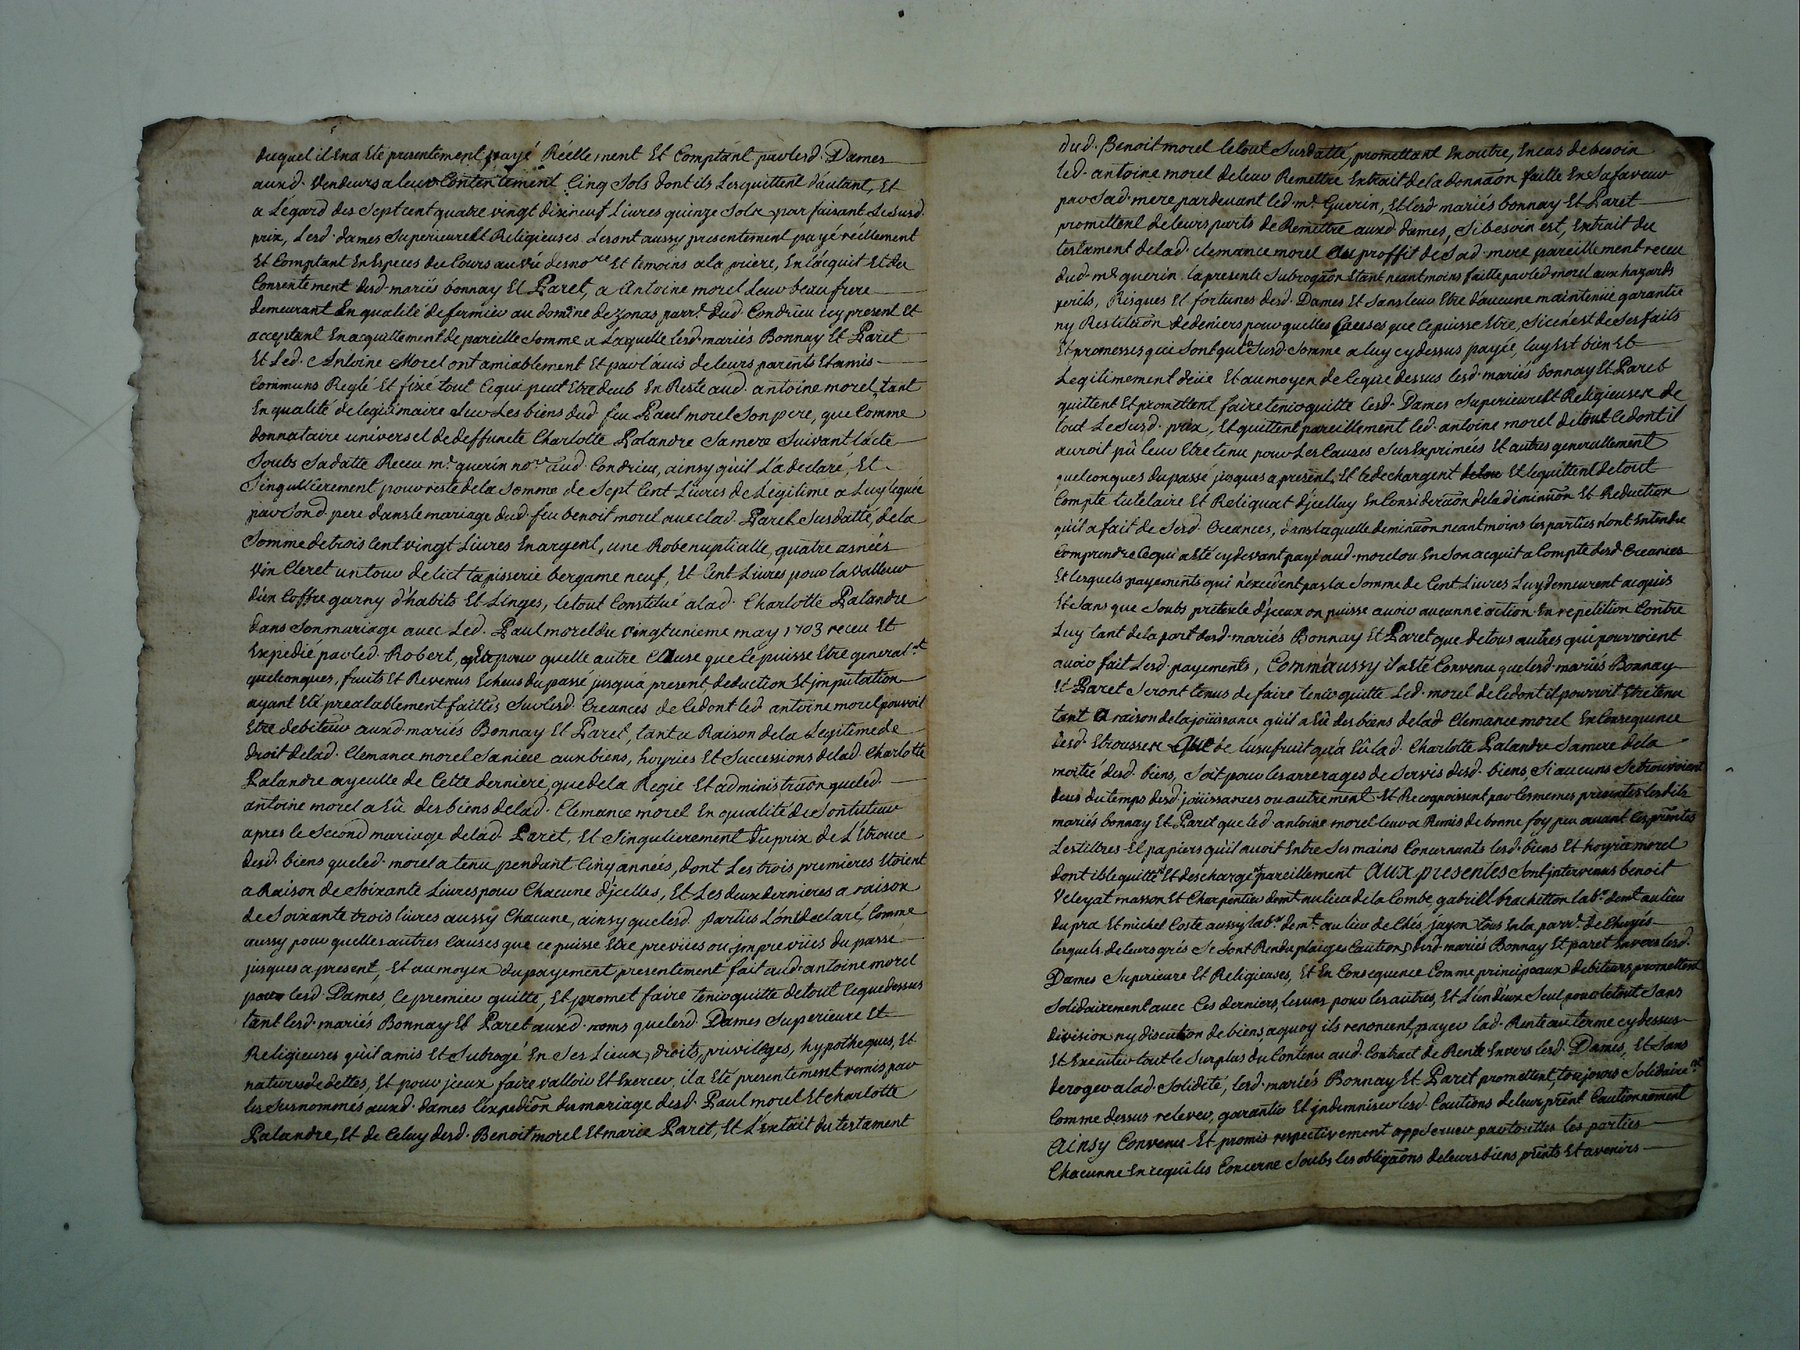 duquel il en a êté presentement payé Réellement Et Comptant par lesd. Dames
auxd. Vendeurs a leur Contentement Cinq Sols dont ils Les quittent d'autant, Et
a L'égard des Sept cent quatre vingt dixneuf Livres quinze Sols par faisant Le Susd.
prix, Lesd. dames Superieure Et Religieuses Leront aussy presentement payé réellement
Et Comptant En Especes du Cours au vû des no.re Et temoins a la priere, En l'acquit Et du
Consentement desd. mariés bonnay Et Paret, a Antoine morel Leur beau frere
demeurant En qualité de fermier au domêne de Zonas parr.e dud. Condrieu icy present Et
acceptant En acquittement de pareille Somme a Laquelle lesd. mariés Bonnay Et Paret
Et Led. Antoine Morel ont amiablement Et par L'auis de leurs parents Et amis
Communs Reglé Et fixé tout Ce qui peut Etre deub En Reste aud. antoine morel, tant
En qualité de legitimaire Sur Les biens dud. feu Paul morel Son pere, que Comme
donnataire universel de deffuncte Charlotte Palandre Samere Suivant l'acte
Soubs Sa datte Receu m.e guerin no.re aud. Condrieu, ainsy qu'il L'a declaré, Et
Singulierement pour reste de la Somme de Sept Cent Livres de Légitime a Luy leguée
par Sond. pere dans le mariage dud. feu benoit morel avec lad. Paret Susdatté, de la
Somme de trois Cent vingt Livres En argent, une Robe nuptialle, quatre asnées
vin Cleret un tour de lict tapisserie bergame neuf, Et Cent Livres pour la valleur
d'un Coffre garny d'habits Et Linges, le tout Constitué a lad. Charlotte Palandre
dans Son mariage avec Led. Paul morel du vingt unieme may 1703 receu Et
Expedié par led. Robert, pour quelle autre Cause que Ce puisse Etre general.t
quelconques, fruits Et Revenus Echeus du passé jusqu'à present, deduction Et jmputation
ayant Eté prealablement faittes Sur lesd. Creances de Ce dont led. antoine morel pouvoit
Etre debiteur auxd. mariés Bonnay Et Paret, tant a Raison de la Legitime de
droit de lad. Clemance morel Sa niece aux biens, hoyries Et Successions de lad. Charlotte
Palandre ayeulle de Cette derniere, que de la Regie Et administraõn que led.
antoine morel a Eû des biens de lad. Clemance morel En qualité de Son tuteur
apres le Second mariage de lad. Paret, Et Singulierement du prix de L'Etrouce
desd. biens que led. morel a tenu pendant Cinq années, dont Les trois premieres Etoient
a Raison de Soixante Livres pour Chacune d'jcelles, Et Les deux dernieres a raison
de Soixante trois livres aussy Chacune, ainsy que lesd. parties L'ont declaré, Comme
aussy pour quelles autres Causes que ce puisse Etre previies ou jmpreviies du passé
jusques a present, Et au moyen du payement presentement fait aud. antoine morel
par lesd. Dames, Ce premier quitte, Et promet faire tenir quitte de tout Ce que dessus
tant lesd. mariés Bonnay Et Paret auxd. noms que lesd. Dames Superieure Et
Religieuses qu'il a mis Et Subrogé En Ses Lieux, droits, privileges, hypotheques, Et
nature de dettes, Et pour jceux faire valloir Et Exercer, il a Eté presentement remis par
les Susnommés auxd. dames l'Expediõn du mariage desd. Paul morel Et charlotte
Palandre, Et de Celuy desd. Benoit morel Et marie Paret, Et L'Extrait du testament
dud. Benoit morel le tout Susdatté, promettant En outre, En cas de besoin
led. antoine morel de leur Remettre Extrait de la donnaõn faitte En Sa faveur
par Sad. mere pardevant led. m.e Guerin, Et lesd. mariés bonnay Et Paret
promettent de leurs parts de Remettre auxd. dames, Si besoin est, Extrait du
testament de lad. clemance morel au proffit de Sad. mere pareillement receu
dud. m.e guerin. la presente Subrogaõn Etant neantmoins faitte par led. morel aux hazards
perils, Risques Et fortunes desd. Dames Et Sans leur Etre d'aucune maintenüe garantie
ny Restituõn de deniers pour quelles Causes que Ce puisse Etre, Si ce n'est de Ses faits
Et promesses qui Sont que Susd. Somme a luy cy dessus payée, luy Est bien Et
Legitimement deüe Et au moyen de Ce que dessus lesd. mariés bonnay Et Paret
quittent Et promettent faire tenir quitte lesd. Dames Superieure Et Religieuses de
tout Le Susd. prix, Et quittent pareillement led. antoine morel de tout Ce dont il
auroit pû leur Etre tenu pour Les Causes Sus Exprimées Et autres generallement
quelconques du passé jusques a present, Et Le dechargent Et le quittent de tout
Compte tutelaire Et Reliquat d'jcelluy En Consideraõn de la diminuõn Et Reduction
qu'il a fait de Sesd. Creances, dans laquelle diminuõn neantmoins les parties n'ont Entendu
Comprendre Ce qui a Eté cy devant payé aud. morel ou En Son acquit a Compte desd. Creances
Et lesquels payements qui n'excedent pas la Somme de Cent Livres Luy demeurent acquis
Et Sans que Soubs pretexte d'jceux on puisse avoir aucunne action En repetition Contre
Luy tant de la part desd. mariés Bonnay Et Paret que de tous autres qui pourroient
avoir fait Lesd. payements, Comm'aussy il a Eté Convenu que lesd. mariés Bonnay
Et Paret Seront tenus de faire tenir quitte Led. morel de Ce dont il pourroit Etre tenu
tant a raison de la joüissance qu'il a Eû des biens de lad. Clemance morel En Consequence
desd. Etrousses que de l'usufruit qu'a Eû lad. Charlotte Palandre Sa mere de la
moitié desd. biens, Soit pour les arrerages de Servis desd. biens, Si aucuns Se trouvoient
deus du temps desd. joüissances ou autrement Et Recognoissent par les memes presentes lesdits
mariés bonnay Et Paret que led. antoine morel leur a Remis de bonne foy peu avant les presentes
Les tiltres Et papiers qu'il avoit Entre Ses mains Concernants lesd. biens Et hoyrie morel
dont il le quitte Et descharge pareillement Aux presentes Sont intervenus benoit
Veleyat masson Et Charpentier dem.t au lieu de la Combe gabriel brachitton lab.r dem.t au lieu
du pra Et michel Coste aussy lab.r dem.t au lieu de Chés jayon tous En la parr.e de Chuyés
lesquels de leurs grés Se Sont Rendu pleiges Cautions desd. mariés Bonnay Et paret Envers lesd.
Dames Superieure Et Religieuses, Et En Consequence Comme principeaux debiteurs promettent
Solidairement avec Ces derniers, les uns pour les autres, Et L'un d'eux Seul pour le tout Sans
division ny discution de biens, a quoy ils renoncent, payer lad. Rente au terme cy dessus
Et Executer tout le Surplus du Contenu aud. Contract de Rente Envers lesd. Dames, Et Sans
deroger a lad. Solidité, lesd. mariés Bonnay Et Paret promettent, toujours Solidaire.nt
Comme dessus relever, garantir Et jndemniser lesd. Cautions de leur pñt Cautionnement
Ainsy Convenu Et promis respectivement observer par touttes les parties
Chacunne En ce qui les Concerne Soubs les obligaõns de leurs biens pñts Et avenirs